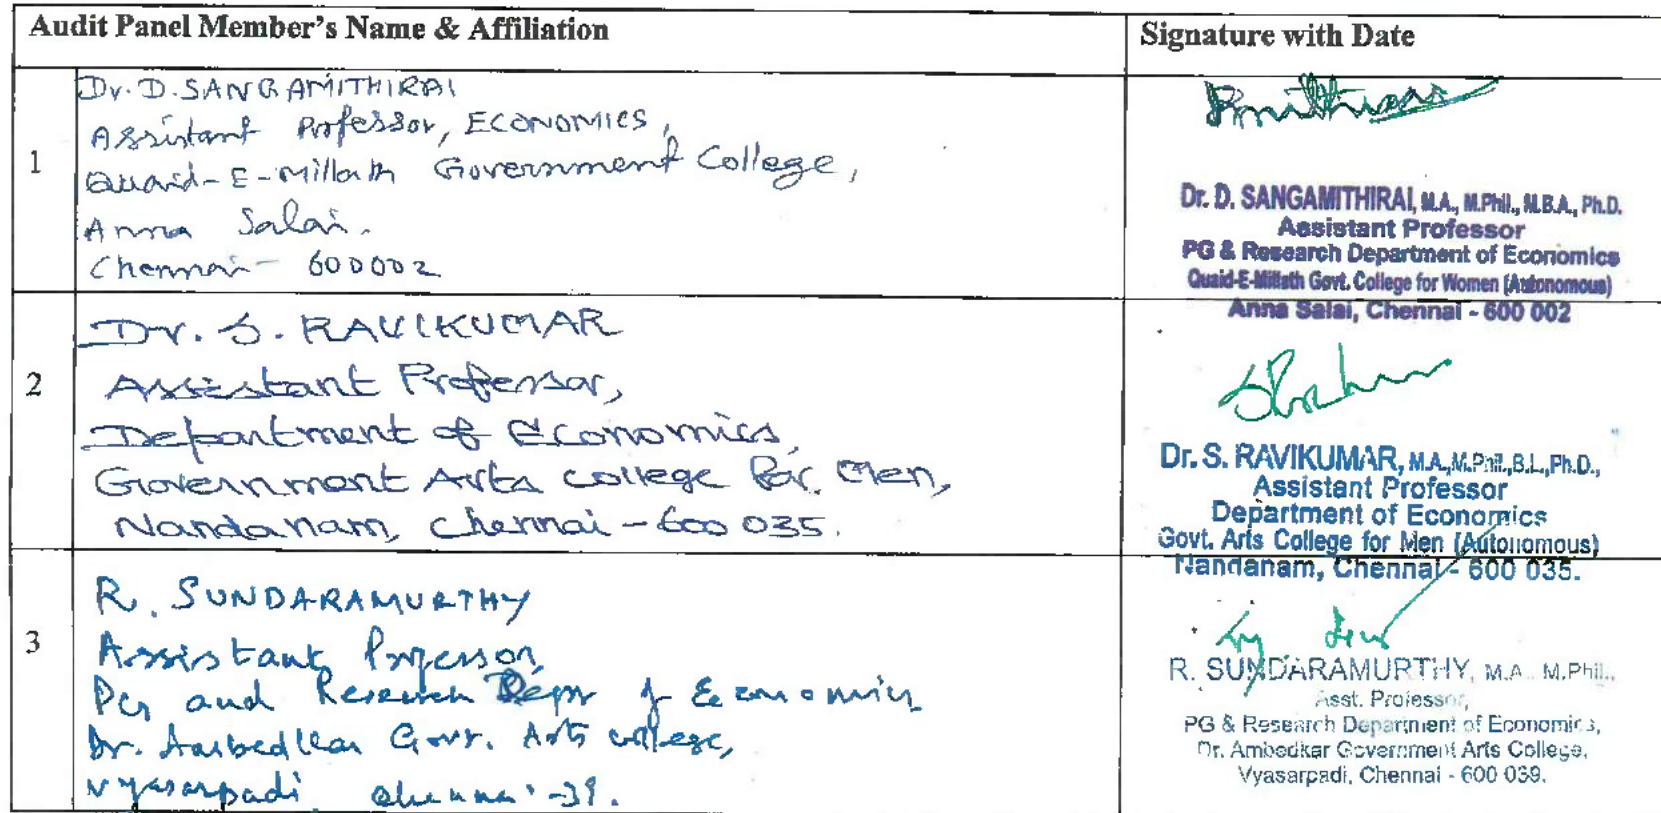 Audit Panel Member's Name & Affiliation
Signature with Date
1
Dr. D. SANGAMITHIRAI
Assistant Professor, ECONOMICS,
Quaid-E-Millath Government College,
Anna Salai.
Chennai - 600002
Dr. D. SANGAMITHIRAI, M.A., M.Phil., M.B.A., Ph.D.
Assistant Professor
PG & Research Department of Economics
Quaid-E-Millath Govt. College for Women (Autonomous)
Anna Salai, Chennai - 600 002
2
Dr. S. RAVIKUMAR
Assistant Professor,
Department of Economics,
Government Arts college for Men,
Nandanam, Chennai - 600 035.
Dr. S. RAVIKUMAR, M.A.,M.Phil.,B.L.,Ph.D.,
Assistant Professor
Department of Economics
Govt. Arts College for Men (Autonomous)
Nandanam, Chennai - 600 035.
3
R. SUNDARAMURTHY
Assistant Professor,
PG and Research Dept of Economics
Dr. Ambedkar Govt. Arts college,
Vyasarpadi Chennai -39.
R. SUNDARAMURTHY, M.A. M.Phil.,
Asst. Professor,
PG & Research Department of Economics,
Dr. Ambedkar Government Arts College,
Vyasarpadi, Chennai - 600 039.